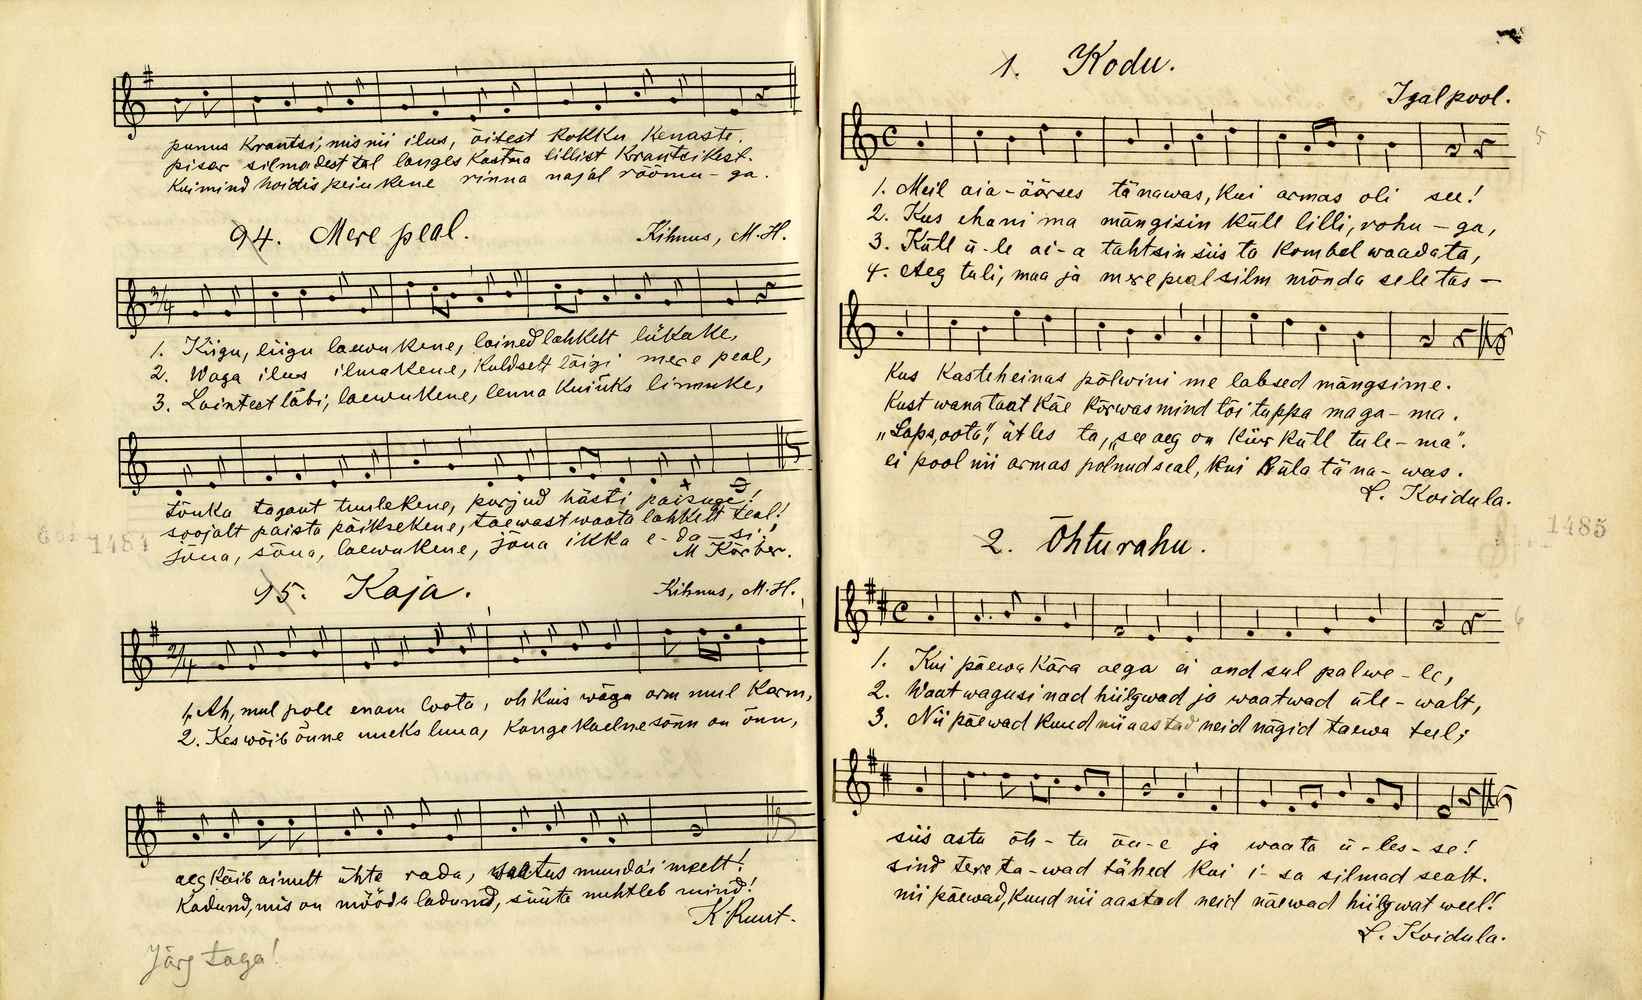 punus krantsi, mis nii ilus, õitest kokku kenaste.
pisar silmadest tal langes kastna lillist krantsikest.
kui mind hoidis peiukene rinna najal rõõmu - ga.
94. Mere peal.
Kihnus, M. H.
3/4
1. Kiigu, liigu laewukene, lained lahkelt lükake,
2. Waga ilus ilmakene, kuldselt läigi mere peal,
3. Laintest läbi, laewukene, lenna kui üks linnuke,
tõuka tagant tuulekene, purjud hästi paisuge!
soojalt paista päiksekene, taewast waata lahkelt seal!
jõua, sõua, laewukene, jõua ikka e - da - si!
M Körber.
95. Kaja.
Kihnus, M. H.
2/4
1. Ah, mul pole enam loota, oh kuis wäga arm mul karm,
2. Kes wõib õnne uueks luua, kangekaelne sõnn on õnn,
aeg käib ainult ühte rada, saatus muuda'i meelt!
Kadund, mis on mööda ladund, süüta nuhtleb mind!
K. Ruut.
Järg taga!
1484
1. Kodu.
Igal pool.
5
C
1. Meil aia-äärses tänawas, kui armas oli see!
2. Kus ehani ma mängisin küll lilli, rohu - ga,
3. Küll ü-le ai-a tahtsin siis ta kombel waadata,
4. Aeg tuli, maa ja mere peal silm mõnda seletas -
kus kasteheinas põlwini me lapsed mängsime.
kust wanataat käe kõrwas mind tõi tuppa maga - ma.
„Laps, oota", ütles ta, „see aeg on kiir küll tule - ma".
ei pool nii armas polnud seal, kui küla täna - was.
L. Koidula.
1485
2. Õhturahu.
6
C
1. Kui päewa kära aega ei and sul palwe - le,
2. Waat wagusi nad hiilgwad ja waatwad üle - walt,
3. Nii päewad kuud nii aastad neid nägid taewa teel;
siis astu õh - tu õu-e ja waata ü - les - se!
sind tere ta-wad tähed kui i - sa silmad sealt.
nii päewad, kuud nii aastad neid näewad hiilgwat weel!
L. Koidula.